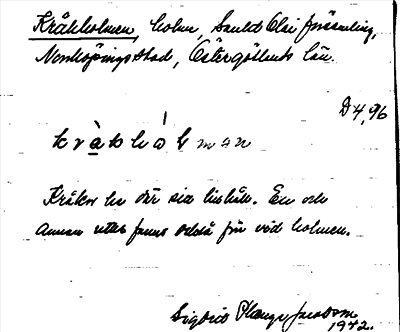 Kråkholmen, holm, Sankt Olai församling,
Norrköpings stad, Östergötlands län.
D 4,96
kråkhòlman
Kråkor ha där sia tillhåll. En och
annan utter fanns också förr vid holmen.
Sigbrit Plænge Jacobson
1942.